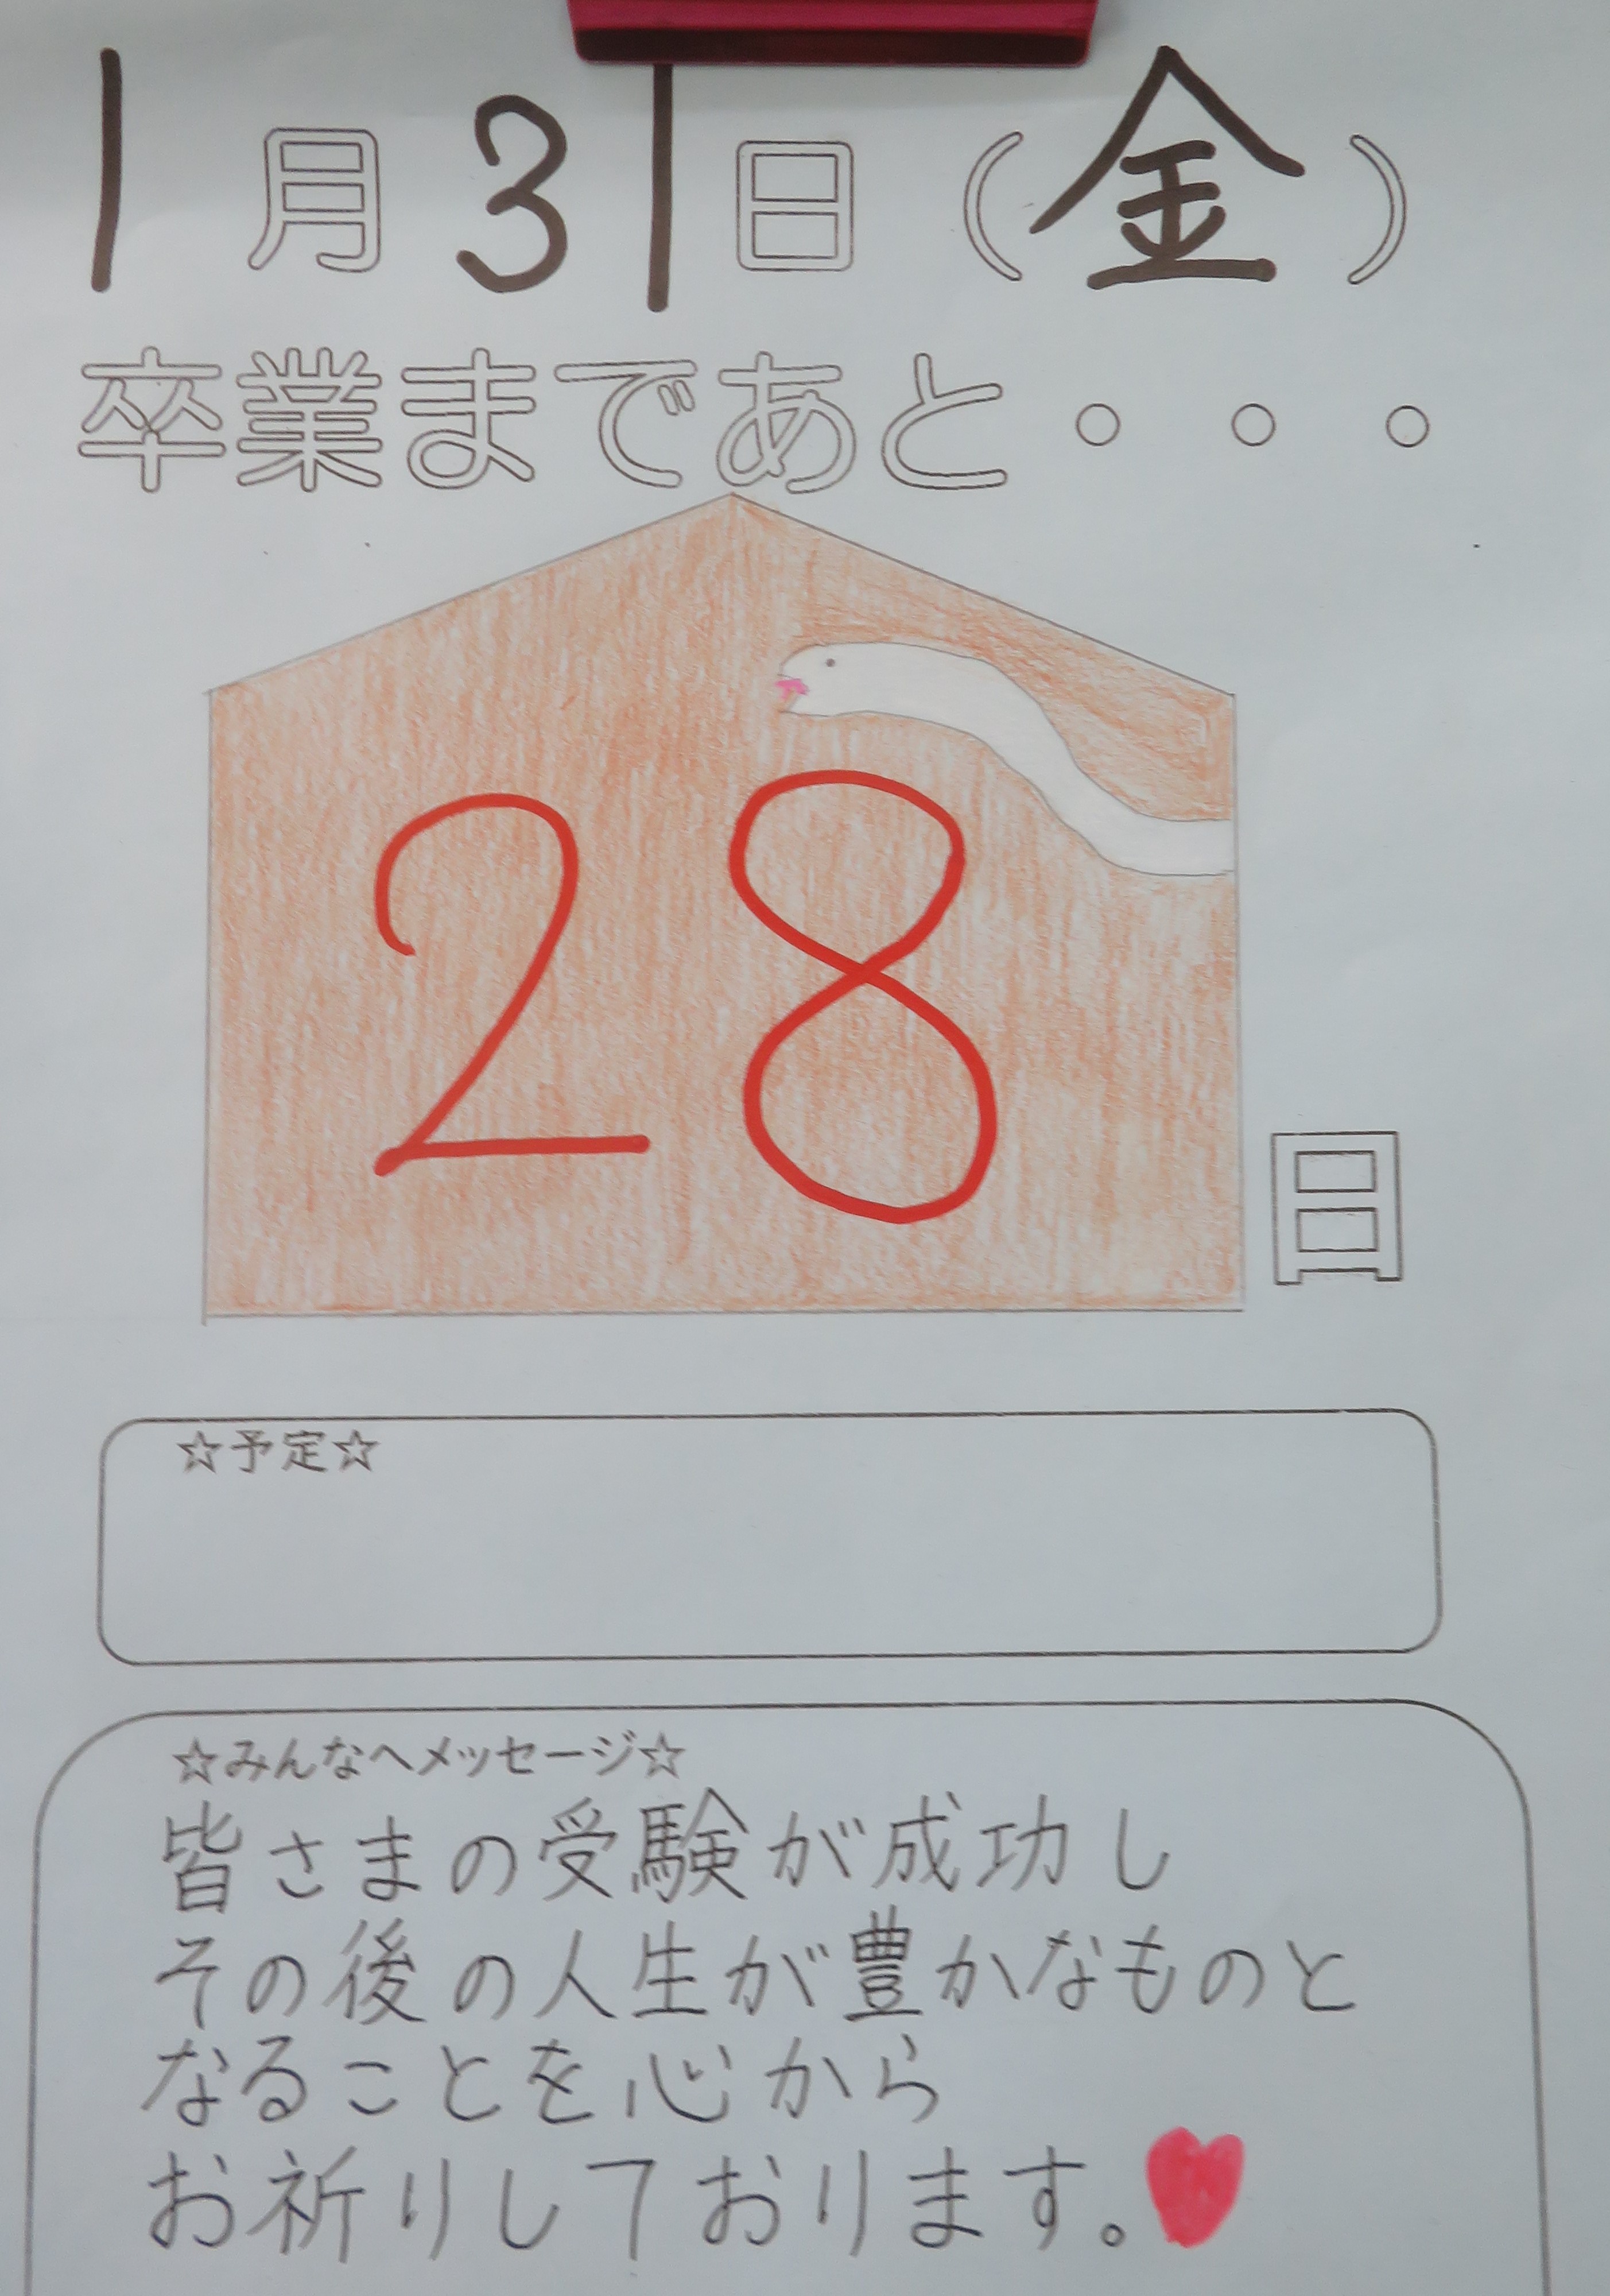 1月31日(金)
卒業まであと・・・
28日
☆予定☆
☆みんなへメッセージ☆
皆さまの受験が成功し
その後の人生が豊かなものと
なることを心から
お祈りしております。